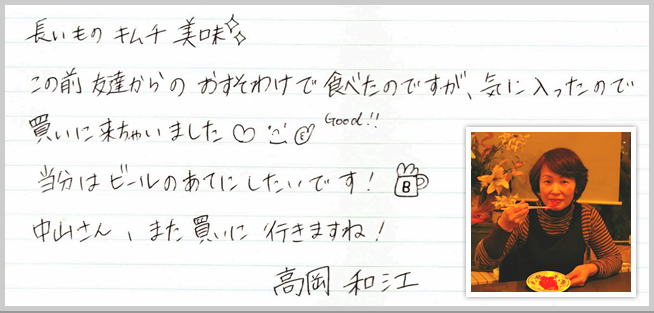 長いもの キムチ 美味
この前 友達からの おすそわけで 食べたのですが、気に入ったので
買いに来ちゃいました♡ Good!!
当分は ビールのあてに したいです！ B
中山さん、また買いに 行きますね！
高岡 和江